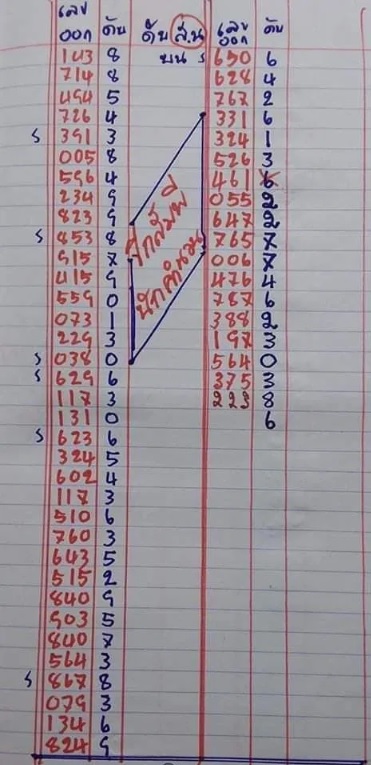 เลข ออก ดับ ดับ ส.น บน
143 8
714 8
494 5
726 4
s 391 3
005 8
596 4
234 9
823 9
s 853 8
915 7
415 9
559 0
073 1
229 3
s 038 0
s 629 6
117 3
131 0
s 623 6
324 5
602 4
117 3
510 6
760 3
643 5
515 2
840 9
903 5
840 7
564 3
s 867 8
079 3
134 6
824 9
นักคำนวณ
เลข ออก ดับ
s 650 6
628 4
767 2
331 6
324 1
526 3
461 6
055 2
647 2
765 7
006 7
476 4
787 6
388 2
197 3
564 0
375 3
223 8
6